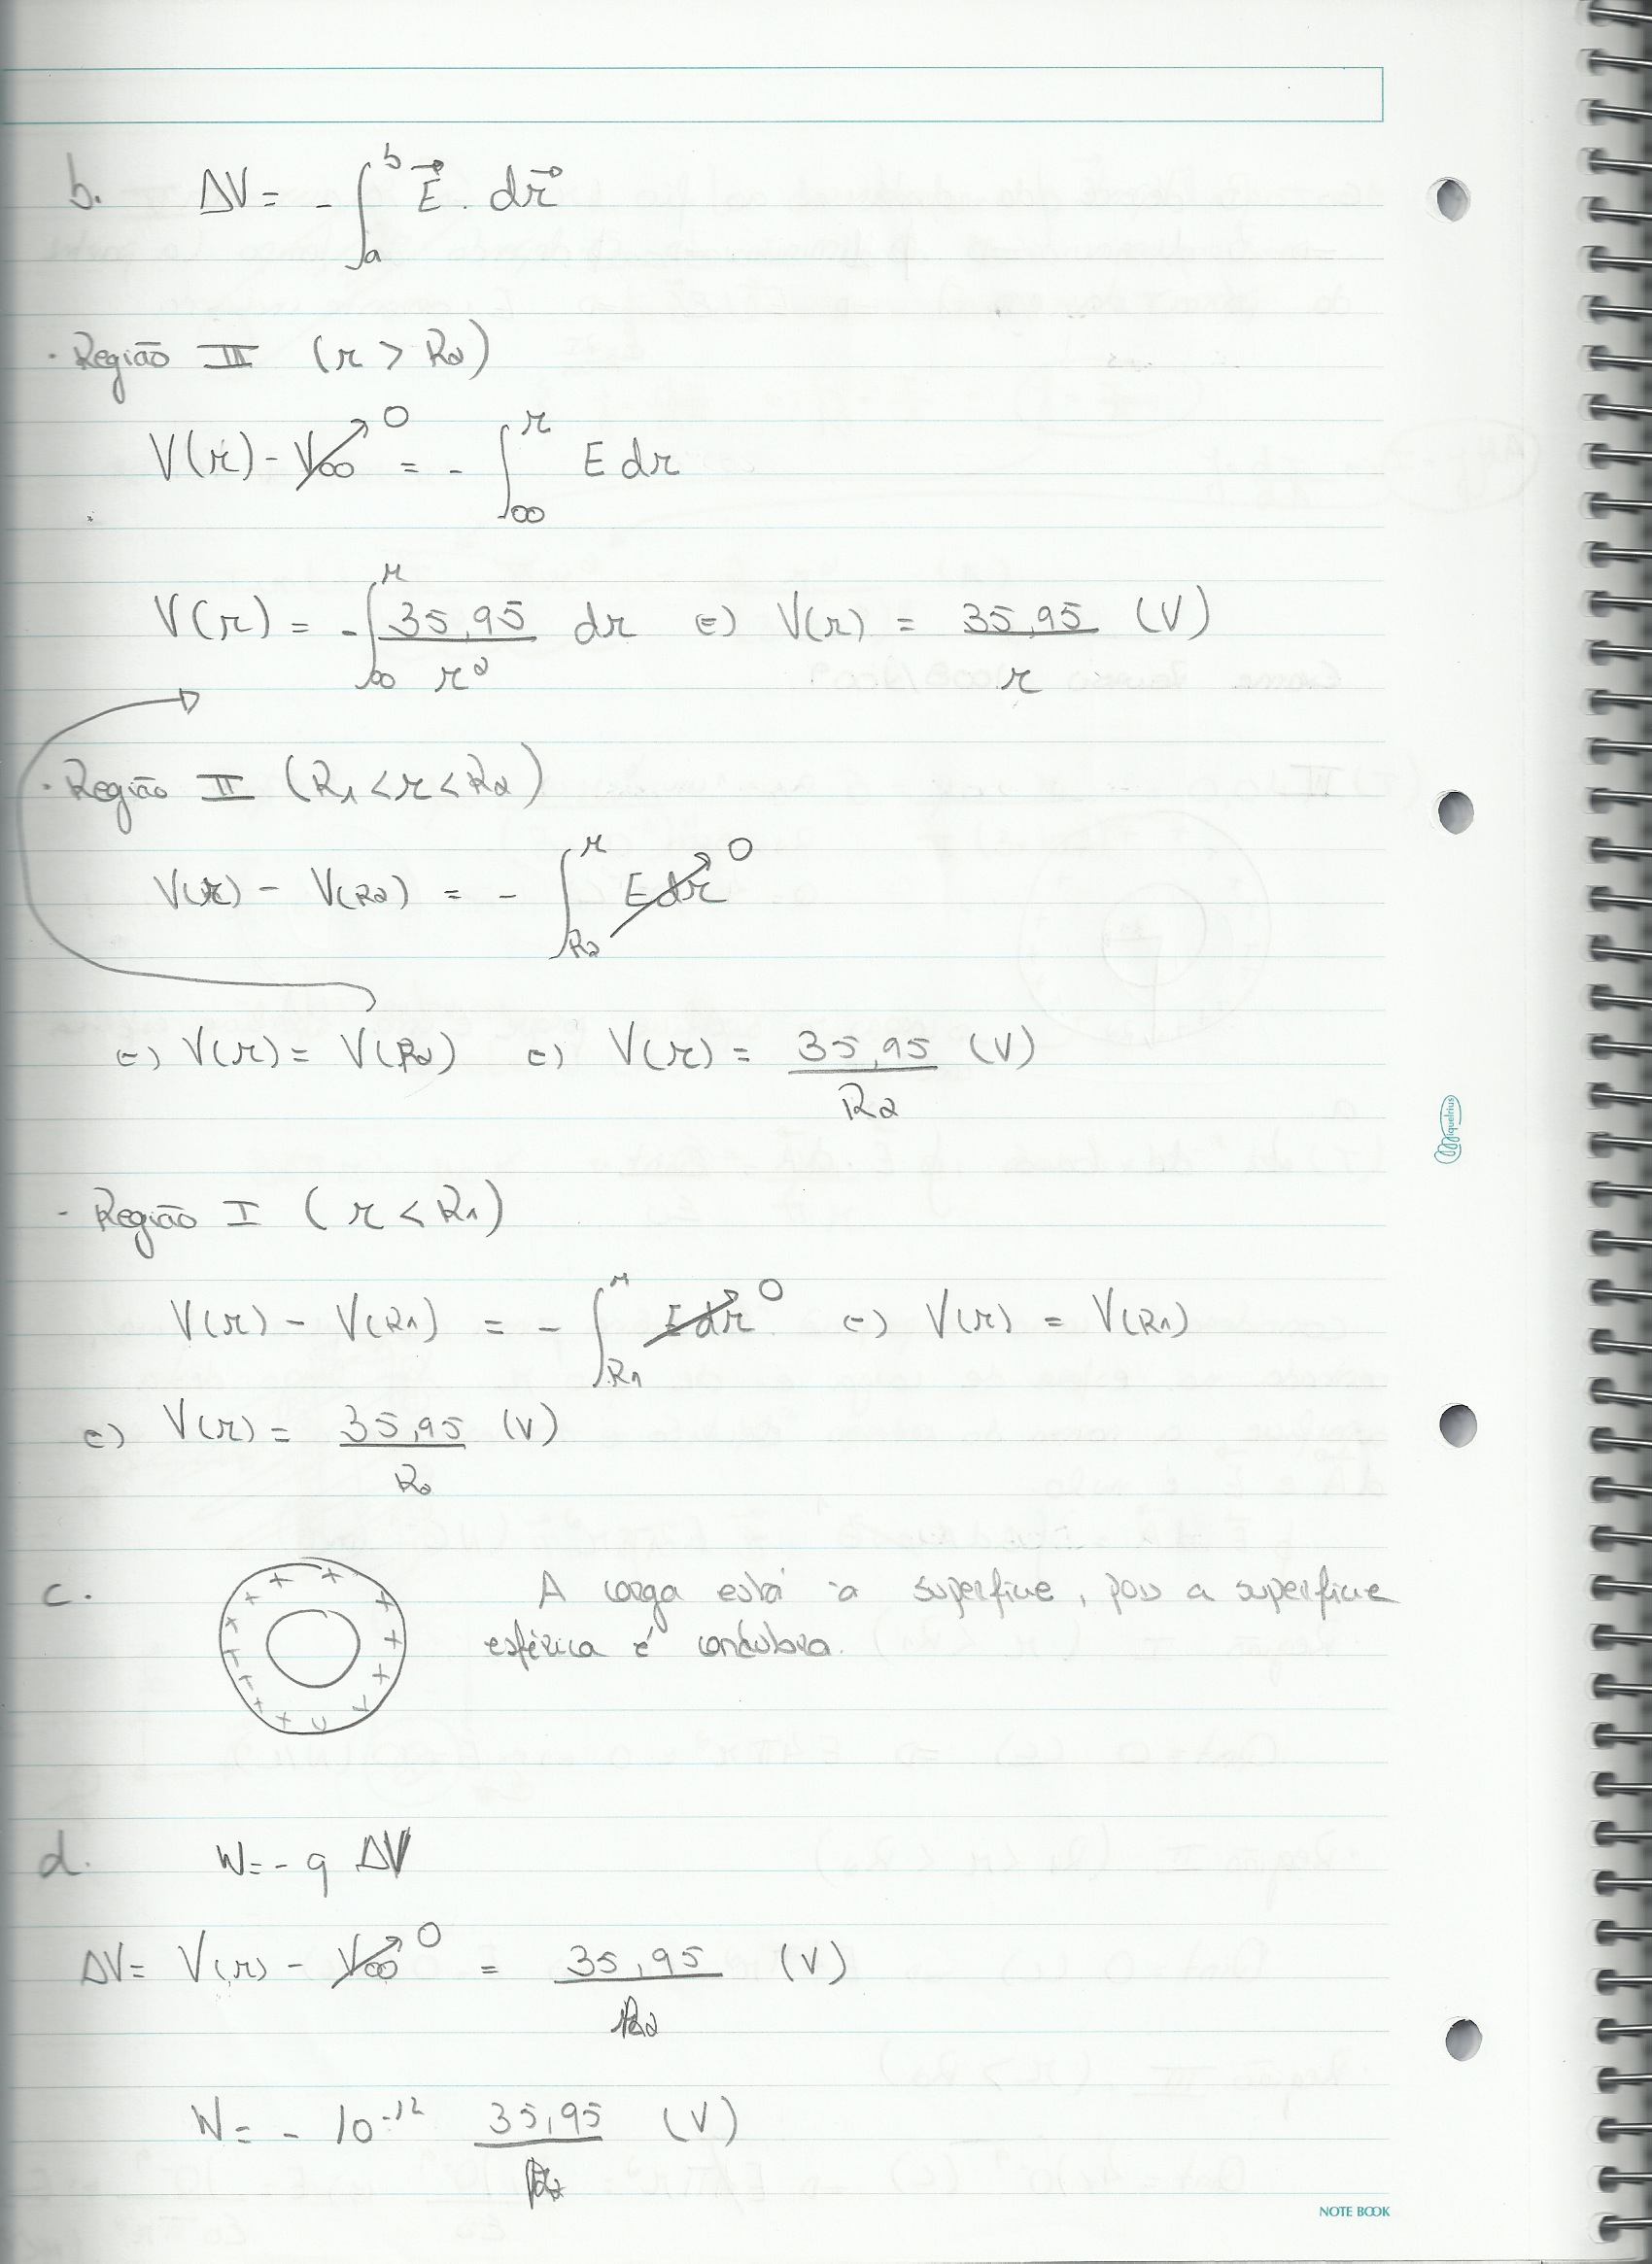 b. ΔV = - ∫_a^b E⃗ . dr⃗
· Região III (r > R2)
V(r) - V∞ ↗0 = - ∫_∞^r E dr
V(r) = - ∫_∞^r 35,95/r² dr (=) V(r) = 35,95/r (V)
· Região II (R1 < r < R2)
V(r) - V(R2) = - ∫_R2^r E dr ↗0
(=) V(r) = V(R2) (=) V(r) = 35,95/R2 (V)
- Região I (r < R1)
V(r) - V(R1) = - ∫_R1^r E dr ↗0 (=) V(r) = V(R1)
(=) V(r) = 35,95/R2 (V)
c. A carga está à superfície, pois a superfície
esférica é condutora.
d. W = - q ΔV
ΔV = V(r) - V∞ ↗0 = 35,95/R2 (V)
W = - 10^-12 35,95/R2 (V)
Miquelrius
NOTE BOOK